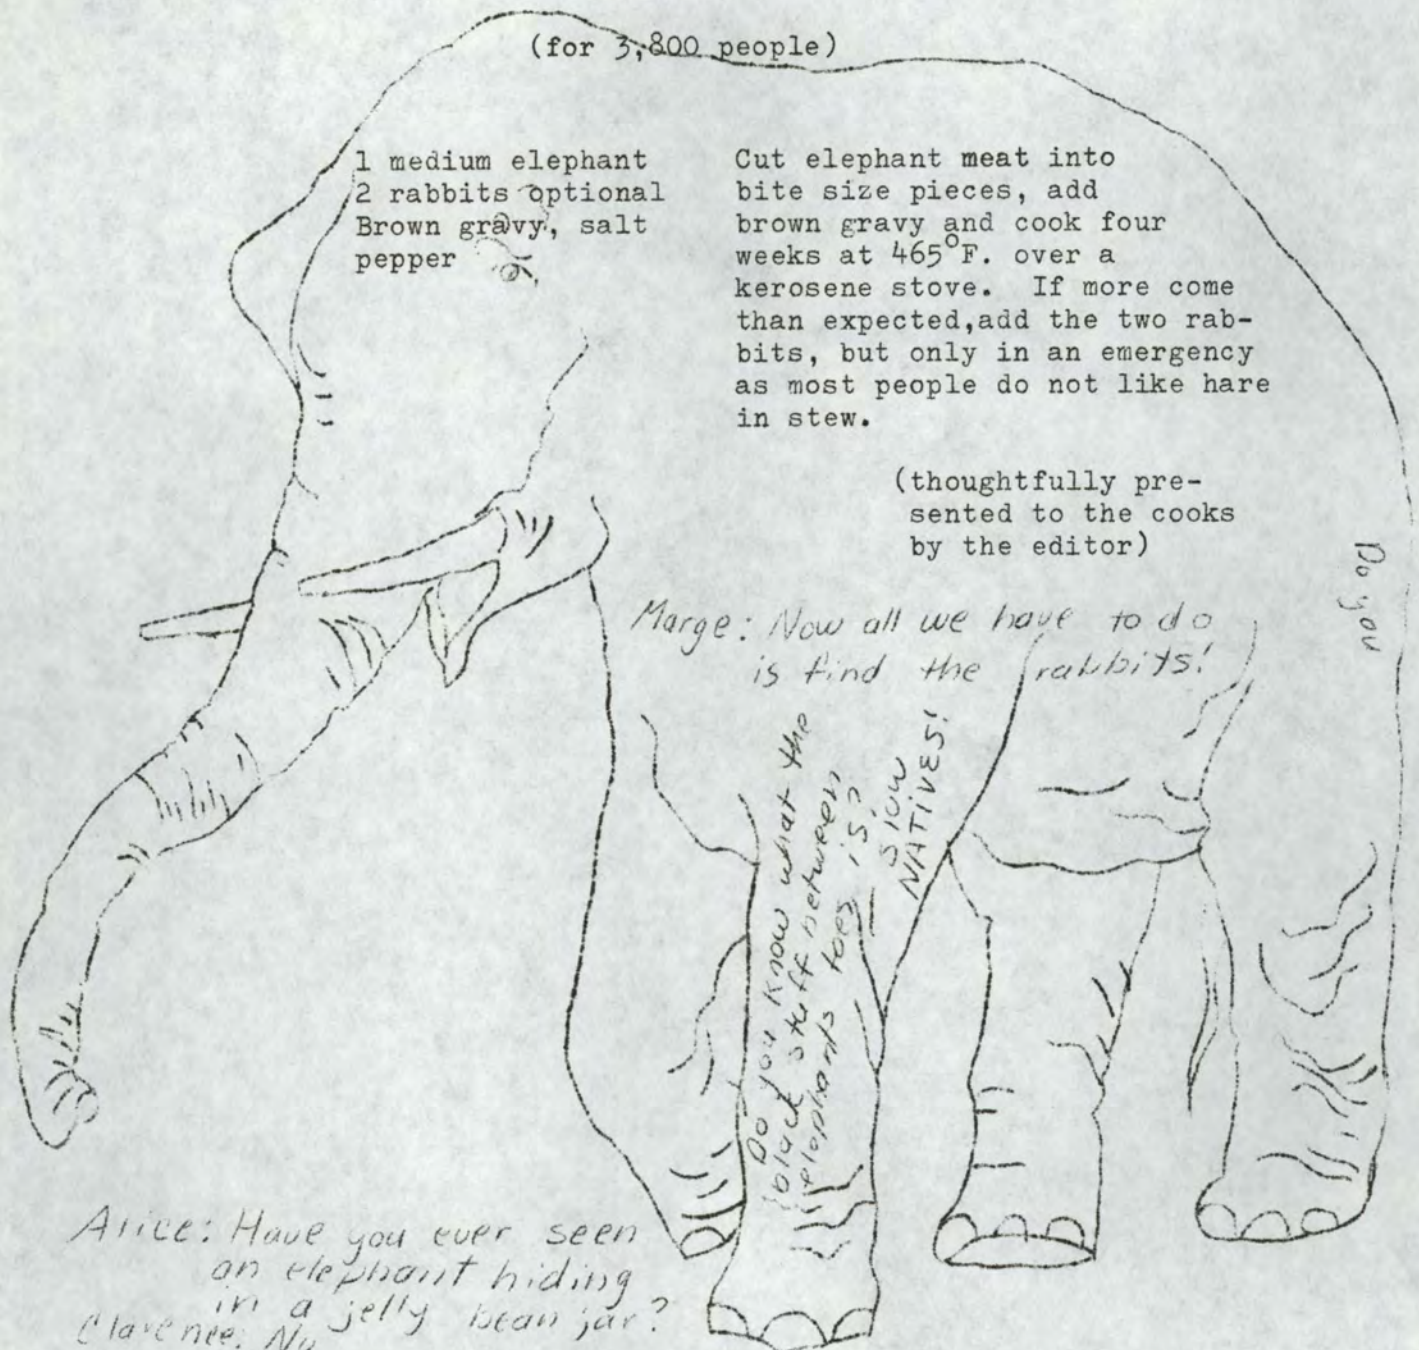 (for 3,800 people)
1 medium elephant
2 rabbits optional
Brown gravy, salt
pepper
Cut elephant meat into
bite size pieces, add
brown gravy and cook four
weeks at 465°F. over a
kerosene stove.  If more come
than expected,add the two rab-
bits, but only in an emergency
as most people do not like hare
in stew.
(thoughtfully pre-
sented to the cooks
by the editor)
Do you
Marge: Now all we have to do
is find the rabbits!
Do you know what the
black stuff between
elephants toes is?
slow
NATIVES!
Alice: Have you ever seen
an elephant hiding
in a jelly bean jar?
Clarence: No